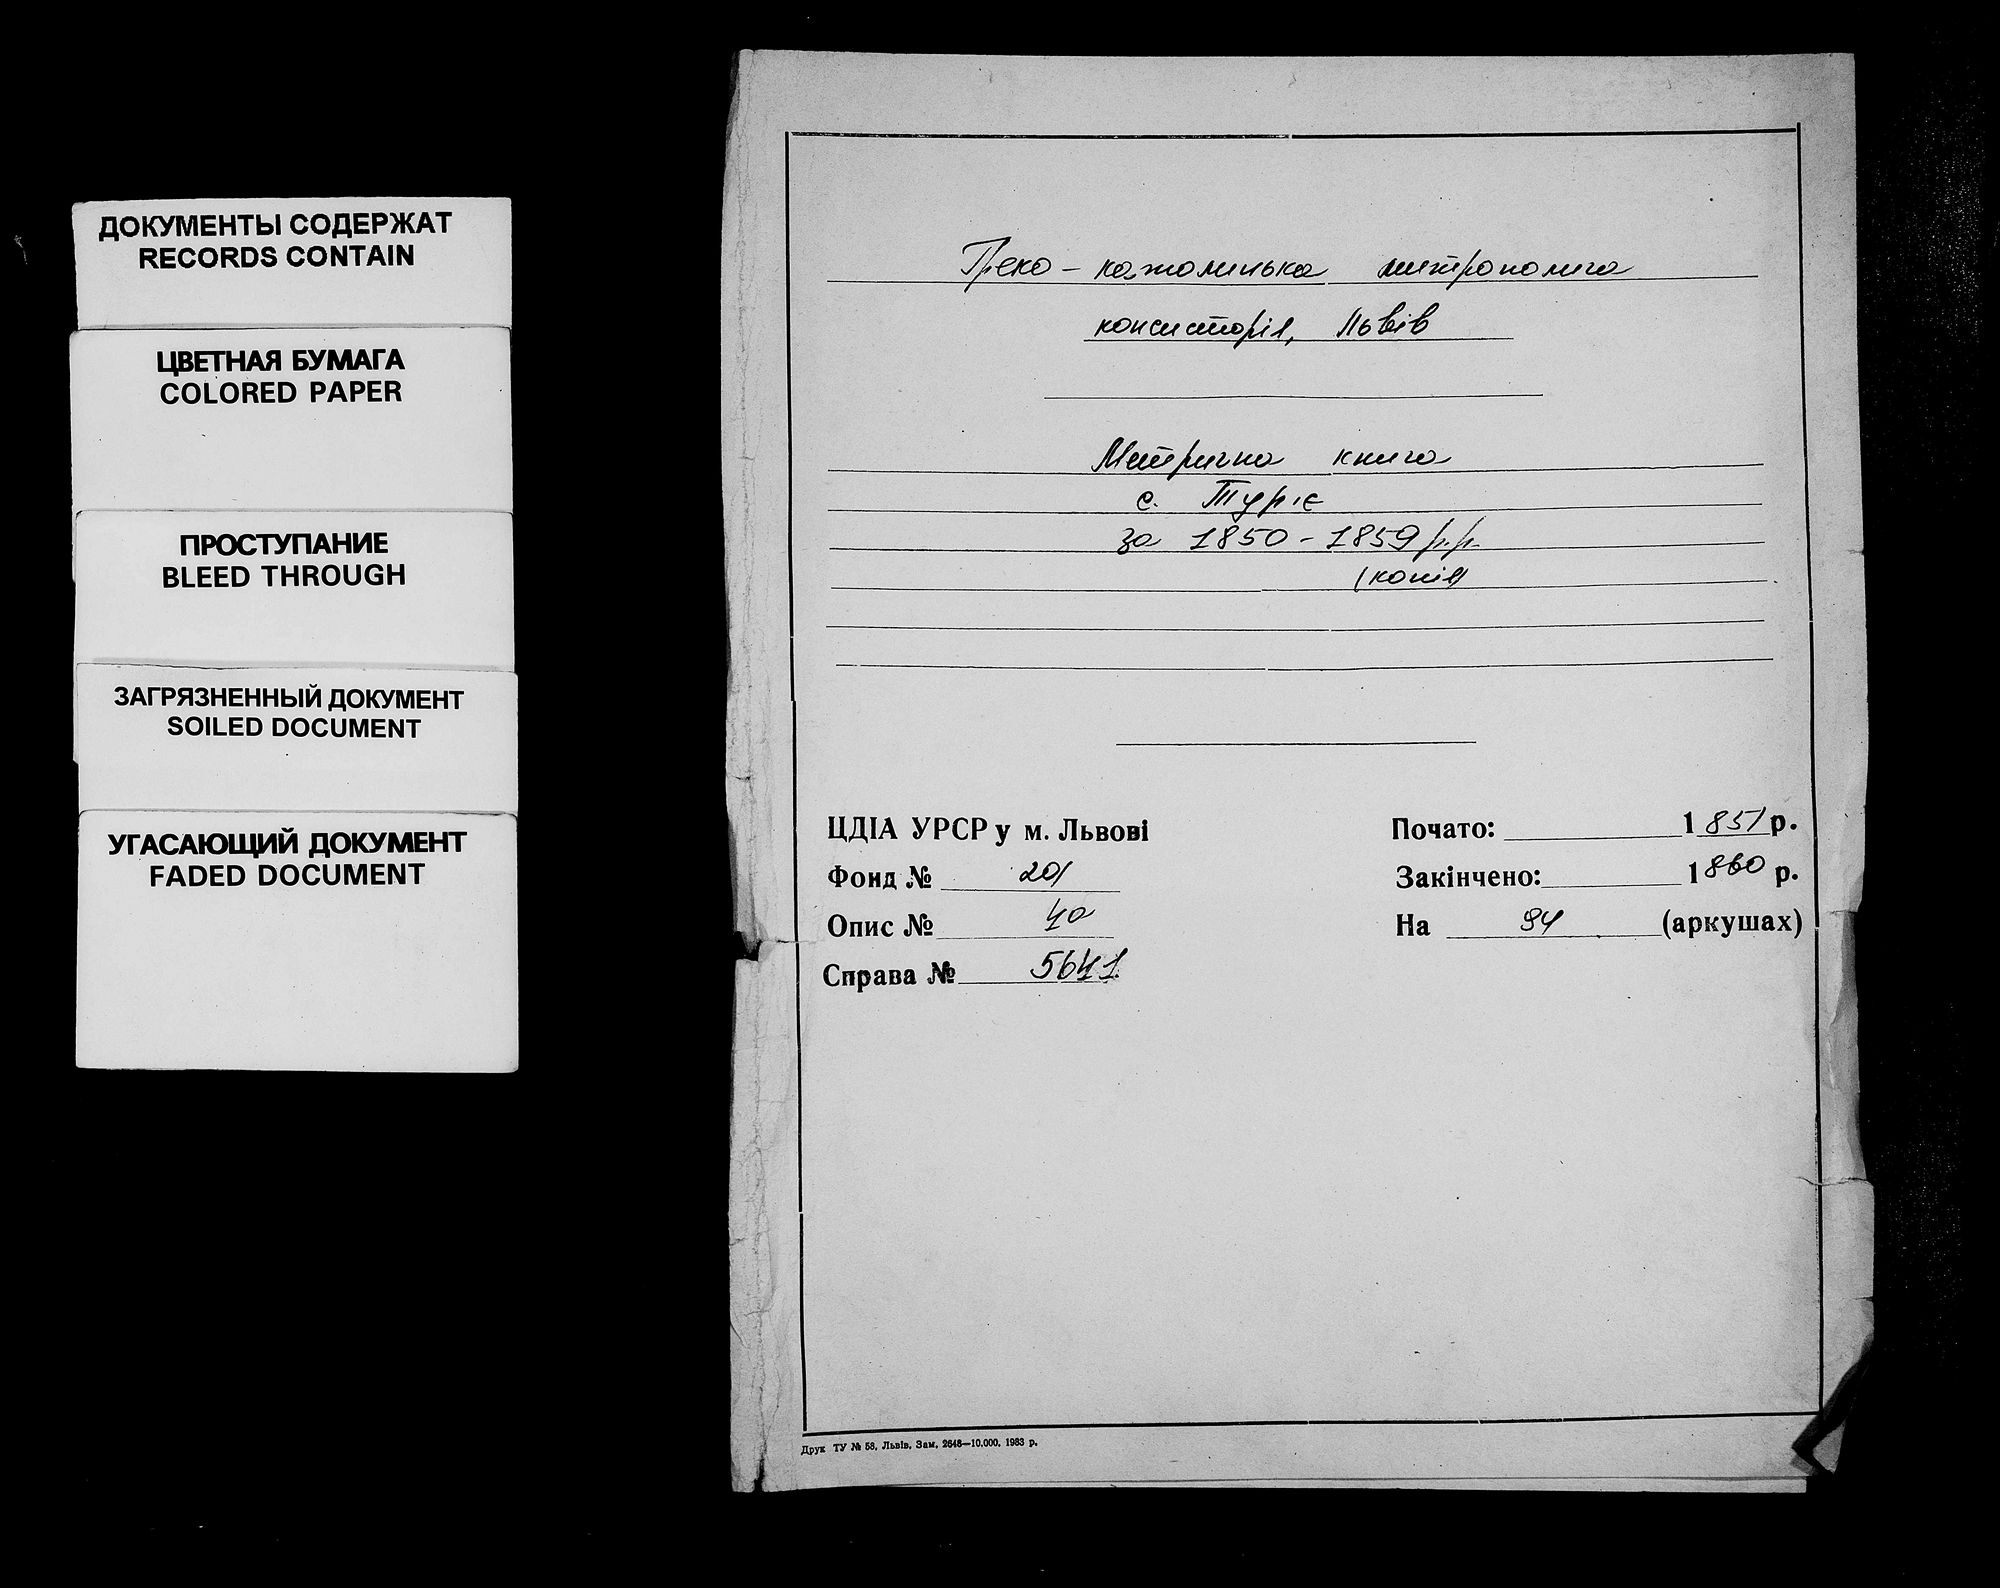 ДОКУМЕНТЫ СОДЕРЖАТ
RECORDS CONTAIN
ЦВЕТНАЯ БУМАГА
COLORED PAPER
ПРОСТУПАНИЕ
BLEED THROUGH
ЗАГРЯЗНЕННЫЙ ДОКУМЕНТ
SOILED DOCUMENT
УГАСАЮЩИЙ ДОКУМЕНТ
FADED DOCUMENT
Греко-католицька митрополича
консисторія, Львів
Метрична книга
с. Тур'є
за 1850-1859 р.р.
(копія)
ЦДІА УРСР у м. Львові
Фонд № 201
Опис № 4а
Справа № 5641
Почато: 1851 р.
Закінчено: 1860 р.
На 94 (аркушах)
Друк ТУ № 58, Львів, Зам. 2648—10.000. 1983 р.